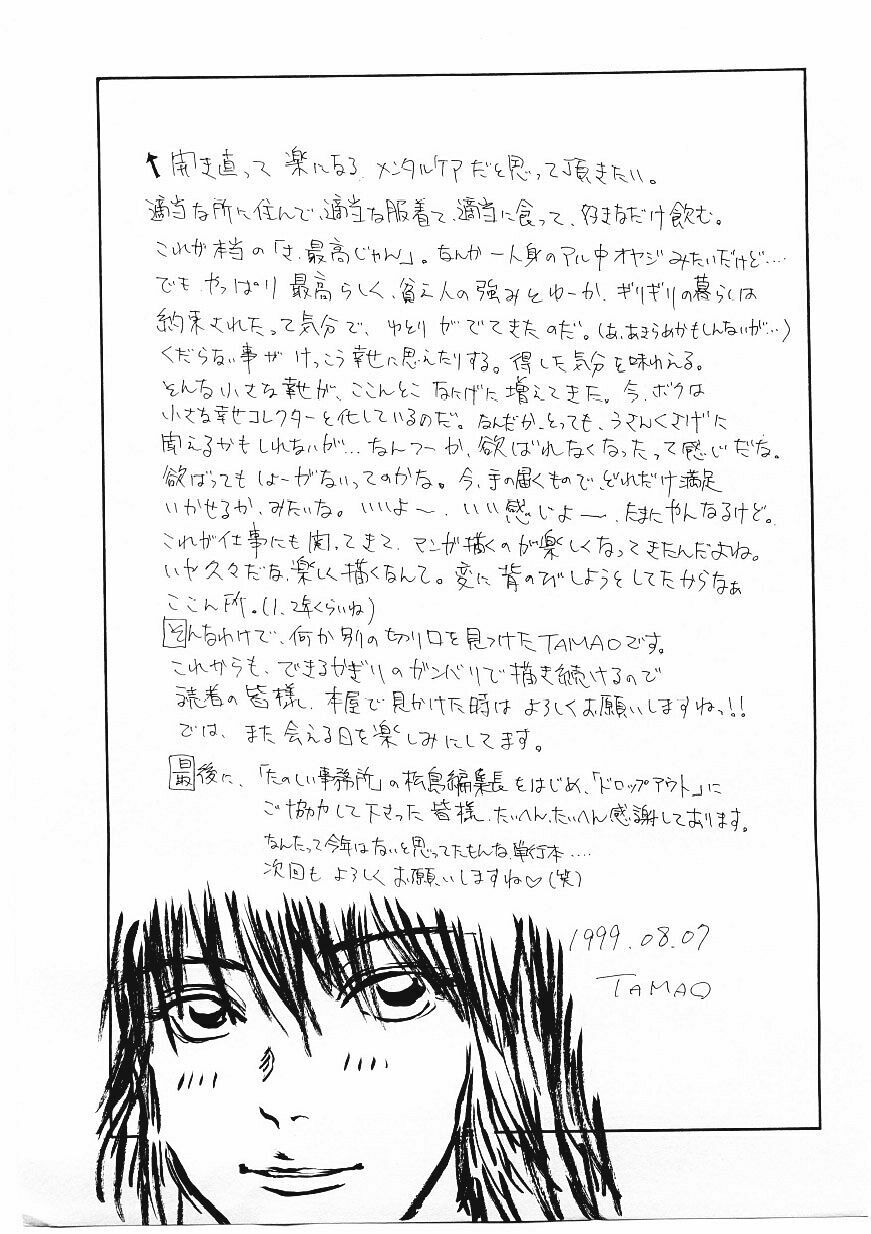 ↑開き直って 楽になる メンタルケアだと思って頂きたい。
適当な所に住んで、適当な服着て、適当に食って、好きなだけ飲む。
これが本当の「さ、最高じゃん」。なんか一人身のアル中オヤジみたいだけど‥‥
でも やっぱり 最高らしく、貧乏人の強みとゆーか、ギリギリの暮らしは
約束されたって気分で、ゆとりがでてきたのだ。(あ、あきらめかもしんないが…)
くだらない事が けっこう幸せに思えたりする。得した気分を味わえる。
そんな小さな幸せが、ここんとこ なにげに増えてきた。今、ボクは
小さな幸せコレクターと化しているのだ。なんだか、とっても、うさんくさげに
聞えるかもしれないが… なんつーか、欲ばれなくなったって感じだな。
欲ばってもしょーがないってのかな。今、手の届くもので、どれだけ満足
いかせるか、みたいな。いいよ〜、いい感じよ〜、たまにやんなるけど。
これが仕事にも関ってきて、マンガ描くのが楽しくなってきたんだよね。
いや久々だな、楽しく描くなんて。変に背のびしようとしてたからなぁ
ここん所。(1、2年くらいね)
そんなわけで、何か別の切り口を見つけたTAMAOです。
これからも、できるかぎりのガンバリで描き続けるので
読者の皆様、本屋で見かけた時は よろしくお願いしますねっ!!
では、また会える日を楽しみにしてます。
最後に、「たのしい事務所」の松島編集長をはじめ、「ドロップアウト」に
ご協力して下さった皆様、たいへん、たいへん感謝しております。
なんたって今年はないと思ってたもんな、単行本‥‥
次回も よろしくお願いしますね♡(笑)
1999.08.07
TAMAO